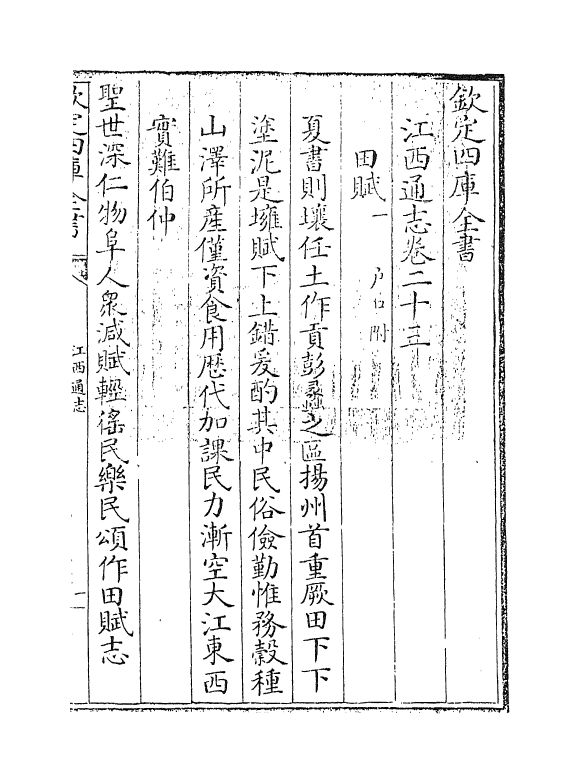 欽定四庫全書
江西通志卷二十三
田賦一 户口附
夏書則壤任土作貢彭蠡之區揚州首重厥田下下
塗泥是壅賦下上錯爰酌其中民俗儉勤惟務穀種
山澤所產僅資食用歷代加課民力漸空大江東西
實難伯仲
聖世深仁物阜人衆減賦輕徭民樂民頌作田賦志
欽定四庫全書
江西通志
一